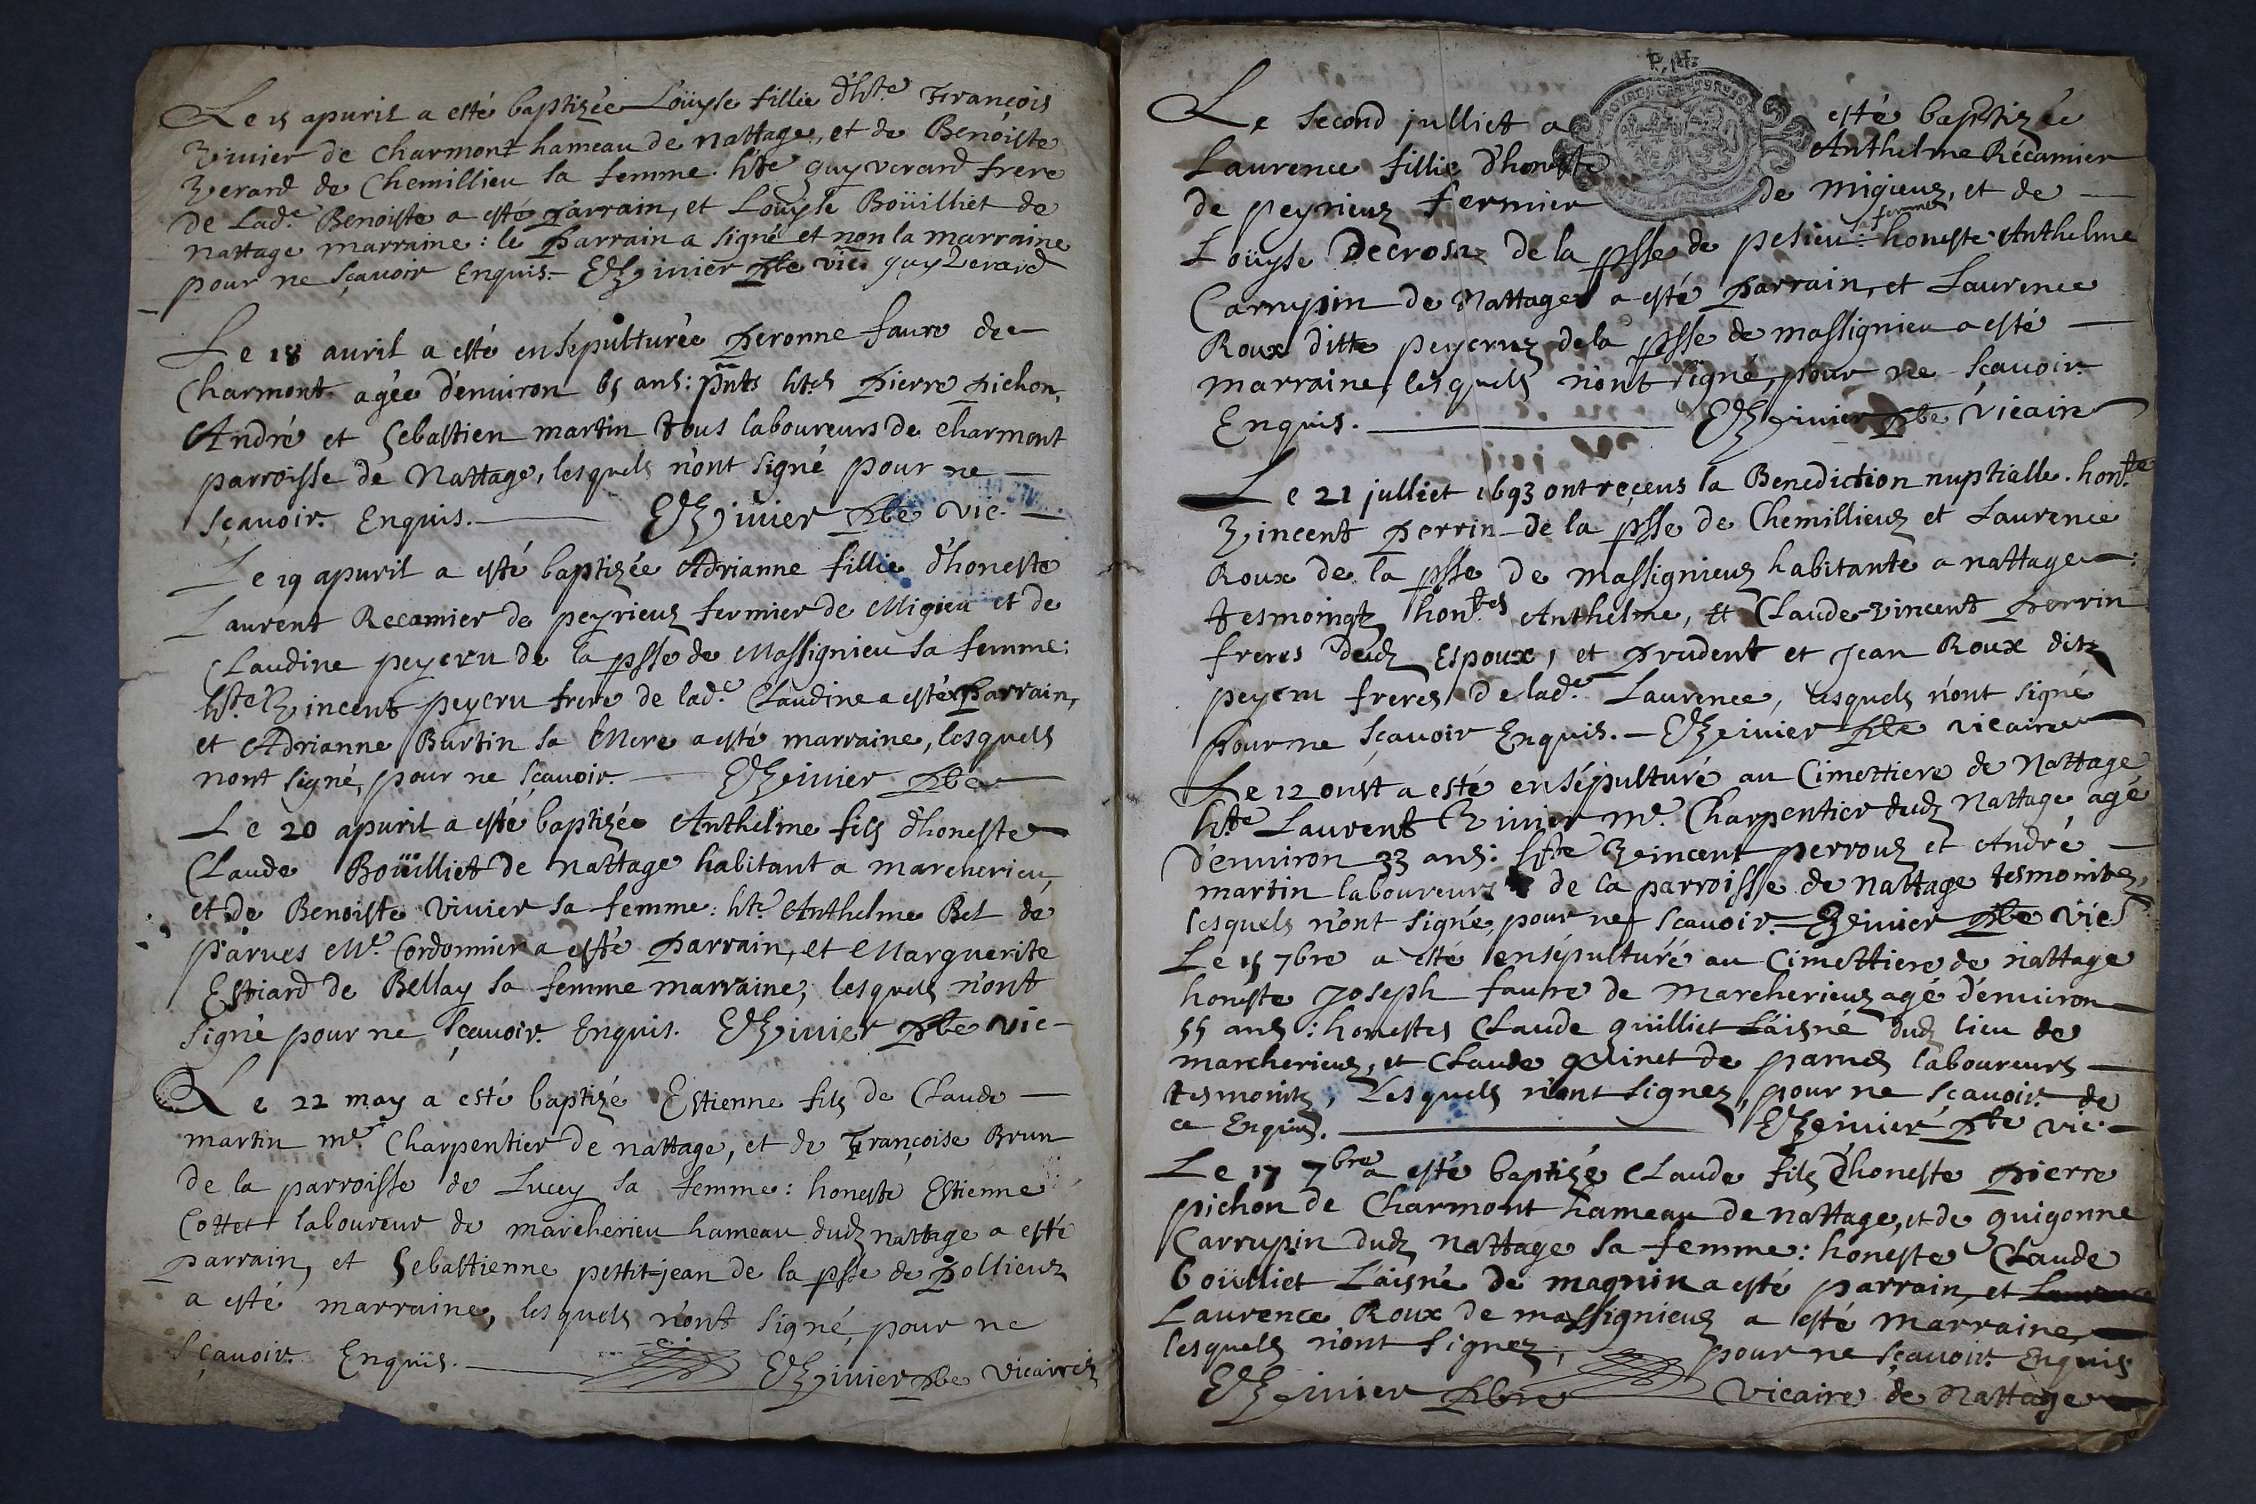 Le 15 apuril a esté baptizée Loüyse fillie d'hte François
Viuier de Charmont hameau de nattage, et de Benoiste
Verard de Chemillieu sa femme. hste guy verard frere
de lad.e Benoiste a esté parrain, et Loüyse Boüilliet de
nattage marraine : le parrain a signé et non la marraine
pour ne sçauoir Enquis.- Viuier pbre vic. guy Verard
Le 18 auril a esté ensepulturée peronne faure de
Charmont agée d'enuiron 65 ans : pnts htes pierre pichon,
André et Sebastien martin tous laboureurs de charmont
parroisse de Nattage, lesquels n'ont signé pour ne
sçauoir. Enquis. Viuier pbre vic.
Le 19 apuril a esté baptizée Adrianne fillie d'honeste
Laurent Recamier de peyrieuz fermier de Migieu et de
Claudine peycru de la psse de Massignieu sa femme :
hste Vincent peycru frere de lad.e Claudine a esté parrain,
et Adrianne Burtin sa Mere a esté marraine, lesquels
nont signé, pour ne sçauoir. Viuier pbre
Le 20 apuril a esté baptizée Anthelme fils d'honeste
Claude Boüilliet de nattage habitant a marcherieu
et de Benoiste Viuier sa femme : hte Anthelme Bel de
parues Me. Cordonnier a esté parrain, et Marguerite
Estiard de Bellay sa femme marraine, lesquels n'ont
signé pour ne sçauoir. Enquis. Viuier pbre vic-
Le 22 may a esté baptizé Estienne fils de Claude
martin me. Charpentier de nattage, et de Françoise Brun
de la parroisse de Lucey sa femme : honeste Estienne
Cottet laboureur de marcherieu hameau dudz nattage a esté
parrain, et Sebastienne pettit-jean de la psse de pollieuz
a esté marraine, lesquels n'ont signé, pour ne
sçauoir. Enquis. Viuier pbre vicaire
Le second julliet a esté baptizée
Laurence fillie d'honeste Anthelme Récamier
de peyrieuz fermier de migieuz, et de
Loüyse Decrosaz de la psse de pesieu sa femme : honeste Anthelme
Carrupin de Nattage a esté parrain, et Laurence
Roux ditte peycruz de la psse de massignieu a esté
marraine, lesquels n'ont signé, pour ne sçauoir.
Enquis. Viuier pbre vicaire
Le 21 julliet 1693 ont reçeus la Benediction nuptialle. honte
Vincent perrin de la psse de Chemillieuz et Laurence
Roux de la psse de massignieuz habitante a nattage :
tesmoingtz hontes Anthelme, et Claude-vincent perrin
freres dudz Espoux, et prudent et Jean Roux ditz
peycru freres de lad.e Laurence, lesquels n'ont signé
pour ne sçauoir Enquis.- Viuier pbre vicaire
Le 12 oust a esté ensépulturé au Cimettiere de Nattage
hste Laurent Viuier me. Charpentier dudz Nattage agé
d'enuiron 33 ans : hste Vincent perrouz et André
martin laboureurs de la parroisse de nattage tesmointz,
lesquels n'ont signé, pour ne sçauoir.- Viuier pbre vic
Le 15 7bre a esté ensépulturé au Cimettiere de nattage
honeste Joseph faure de Marcherieuz agé d'enuiron
55 ans : honestes Claude guilliet L'aisné dudz lieu de
marcherieuz, et Claude quinet de parues laboureurs
tesmointz, Lesquels n'ont signez, pour ne sçauoir. de
ce Enquis. Viuier pbre vic.
Le 17 7bre a esté baptizé Claude fils d'honeste pierre
pichon de Charmont hameau de nattage, et de guigonne
Carrupin dudz nattage sa femme : honeste Claude
boüilliet L'aisné de magnin a esté parrain, et Laurence
Laurence Roux de massignieuz a esté marraine,
lesquels n'ont signez, pour ne sçauoir. Enquis
Viuier pbre vicaire de Nattage